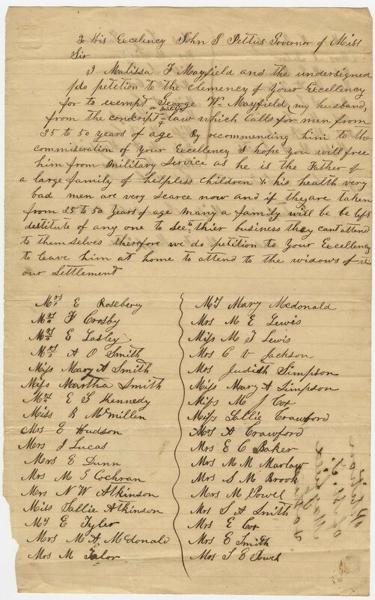 To His Excelency John J Pettus Governor of Miss
Sir
I Matilda F Mayfield and the undersigned
do petition to the clemency of Your Excellency
for to exempt George W. Mayfield, my husband,
from the conscript law which calls for men from
35 to 50 years of age By recommending him to the
commiseration of Your Excellency I hope you will free
him from Military Service as he is the Father of
a large family of helpless children & his health very
bad men are very scarce now and if they are taken
from 35 to 50 years of age many a family will be be left
destitute of any one to see thier business they cant attend
to themselves therefore we do petition to Your Excellency
to leave him at home to attend to the widows of
our Settlement
Mrs E Rasbery
Mrs F Crosby
Mrs E Lasley
Mrs A O Smith
Miss Mary A Smith
Miss Martha Smith
Mrs E S Kennedy
Miss R McMillen
Mrs E Hudson
Mrs J Lucas
Mrs E Dunn
Mrs M E Cochran
Mrs N W Atkinson
Miss Sallie Atkinson
Mrs E Tyler
Mrs M A McDonald
Mrs M Talor
Mrs Mary Mcdonald
Mrs M E Lewis
Miss M J Lewis
Mrs C V Jackson
Mrs Judith Simpson
Miss Mary A Simpson
Miss M J Cox
Miss Sallie Crawford
Mrs A Crawford
Mrs E C Baker
Mrs M M Marlow
Mrs S M Brook
Mrs M Powel
Mrs S A Smith
Mrs E Cox
Mrs E Smith
Mrs S E Powel